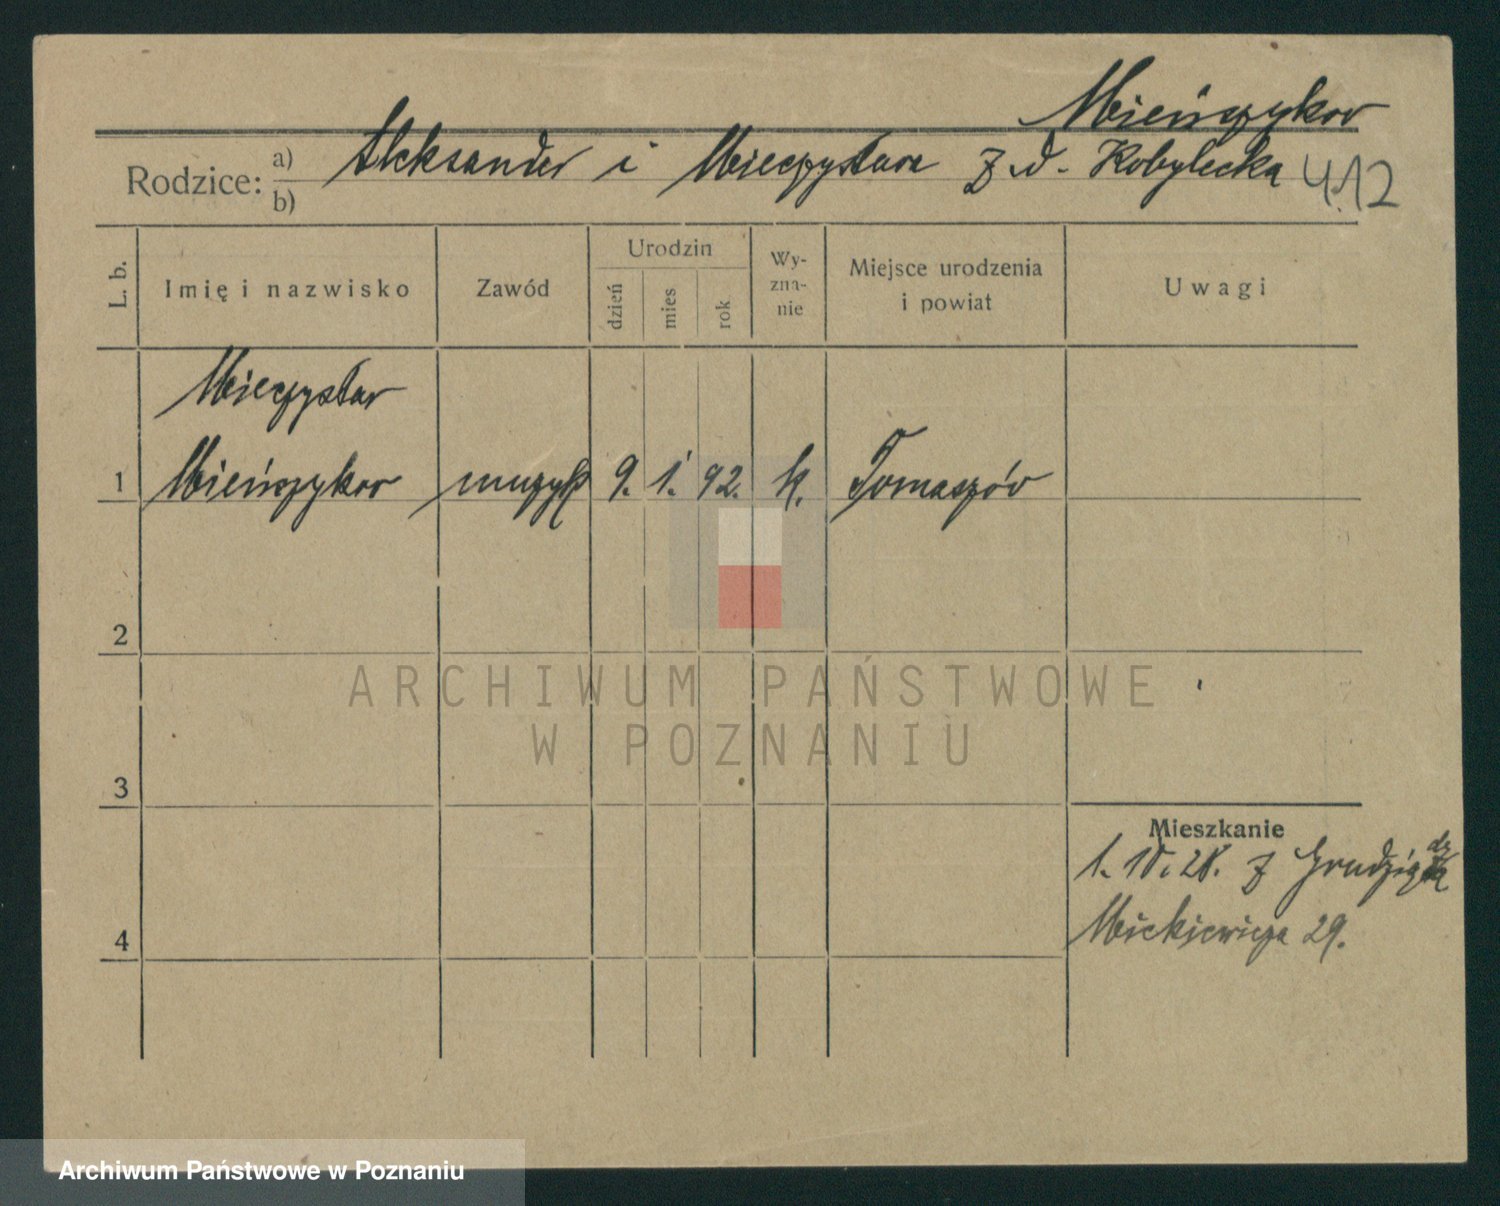 Mieńczykow
Rodzice: a) Aleksander i Mieczysława z d. Kobylecka 412
b)
L. b. Imię i nazwisko Zawód Urodzin dzień mies rok Wy-zna-nie Miejsce urodzenia i powiat Uwagi
Mieczysław
1 Mieńczykow muzyk 9. 1. 92. k. Tomaszów
2
ARCHIWUM PAŃSTWOWE
W POZNANIU
3
Mieszkanie
1. 10. 28. z
4 Mickiewicza 29.
Archiwum Państwowe w Poznaniu